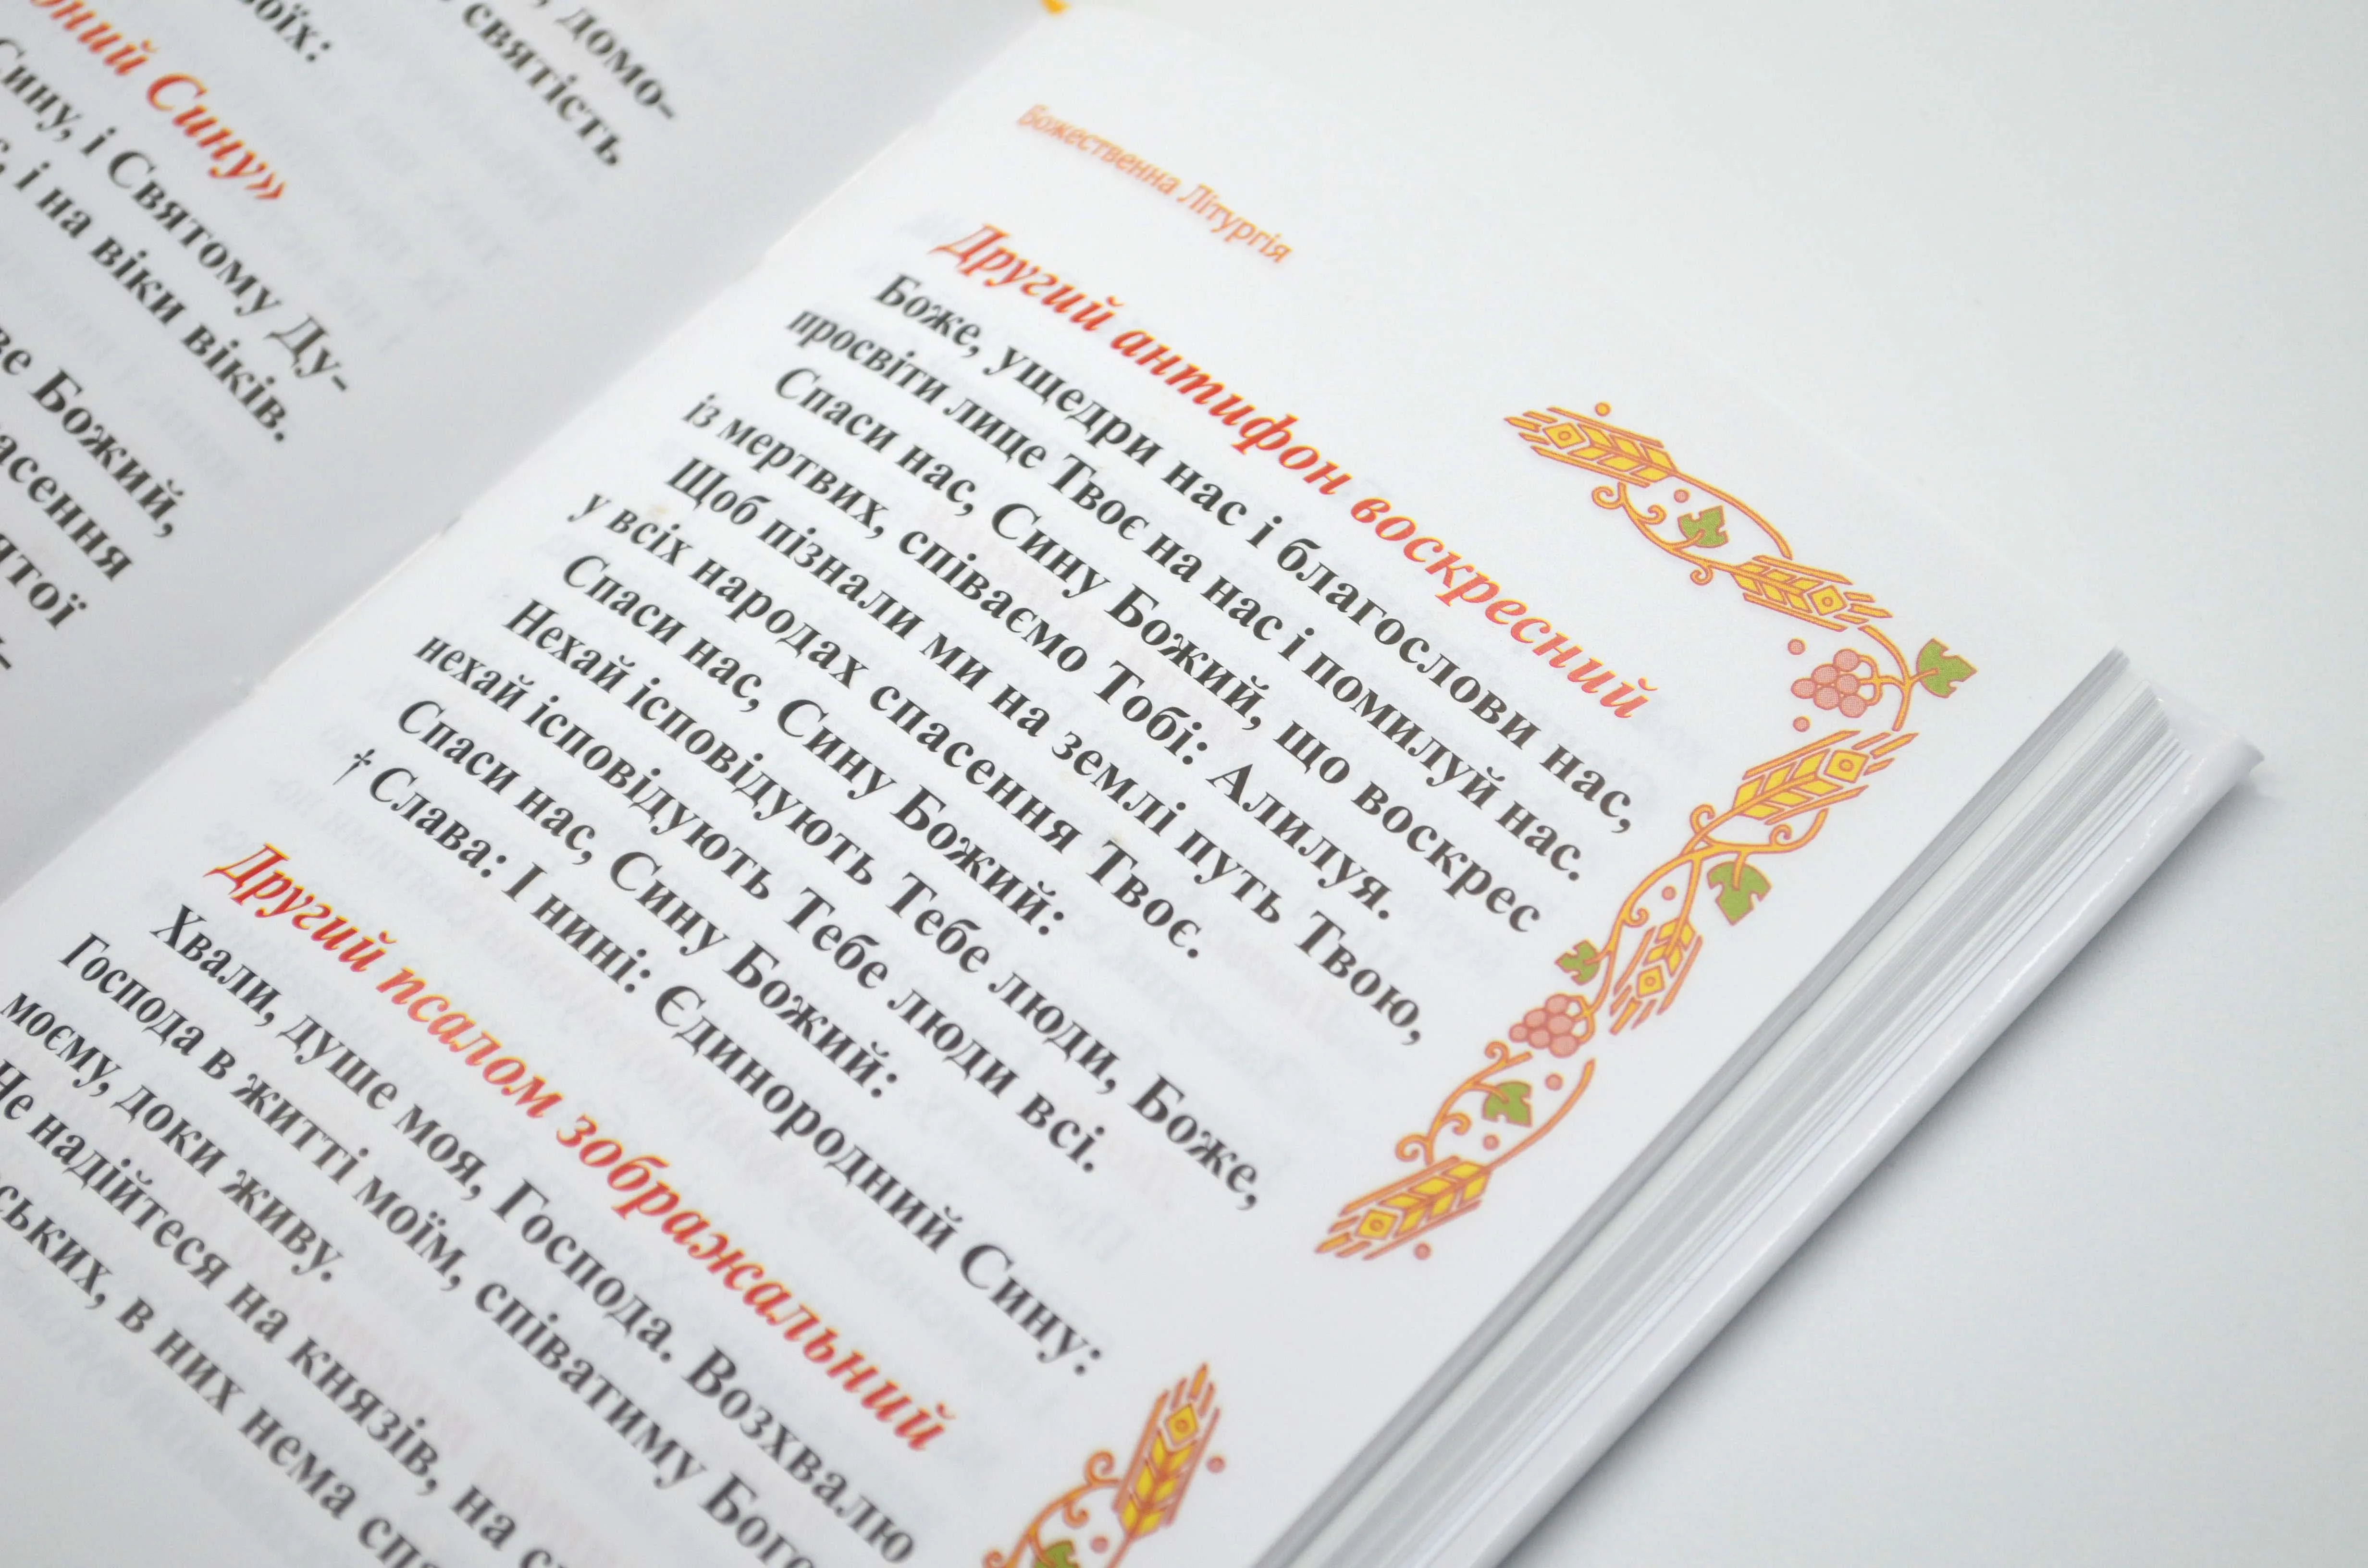 домо-
святість
воїх:
Сину»
Сину, і Святому Ду-
і на віки віків.
Божий,
Божественна Літургія
Другий антифон воскресний
Боже, ущедри нас і благослови нас,
просвіти лице Твоє на нас і помилуй нас.
Спаси нас, Сину Божий, що воскрес
із мертвих, співаємо Тобі: Алилуя.
Щоб пізнали ми на землі путь Твою,
у всіх народах спасення Твоє.
Спаси нас, Сину Божий:
Нехай ісповідують Тебе люди, Боже,
нехай ісповідують Тебе люди всі.
Спаси нас, Сину Божий:
† Слава: І нині: Єдинородний Сину:
Другий псалом зображальний
Хвали, душе моя, Господа. Возхвалю
Господа в житті моїм, співатиму Бого
моєму, доки живу.
Не надійтеся на князів, на
ських, в них нема